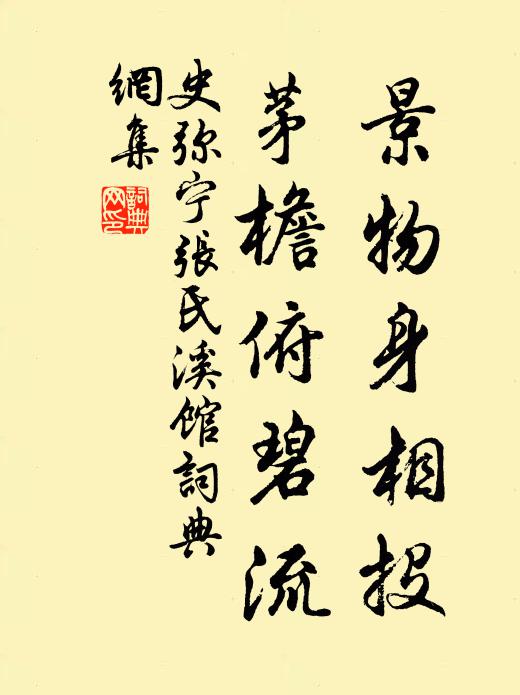 景物身相投
茅檐俯碧流
史弥宁张氏溪馆詞典
網集
詞典
网印